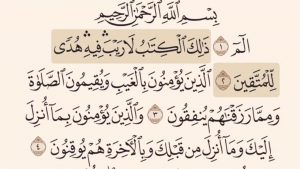 بِسْمِ ٱللَّهِ ٱلرَّحْمَٰنِ ٱلرَّحِيمِ
الٓمٓ ١ ذَٰلِكَ ٱلْكِتَٰبُ لَا رَيْبَ ۛ فِيهِ ۛ هُدًى
لِّلْمُتَّقِينَ ٢ ٱلَّذِينَ يُؤْمِنُونَ بِٱلْغَيْبِ وَيُقِيمُونَ ٱلصَّلَوٰةَ
وَمِمَّا رَزَقْنَٰهُمْ يُنفِقُونَ ٣ وَٱلَّذِينَ يُؤْمِنُونَ بِمَآ أُنزِلَ
إِلَيْكَ وَمَآ أُنزِلَ مِن قَبْلِكَ وَبِٱلْءَاخِرَةِ هُمْ يُوقِنُونَ ٤